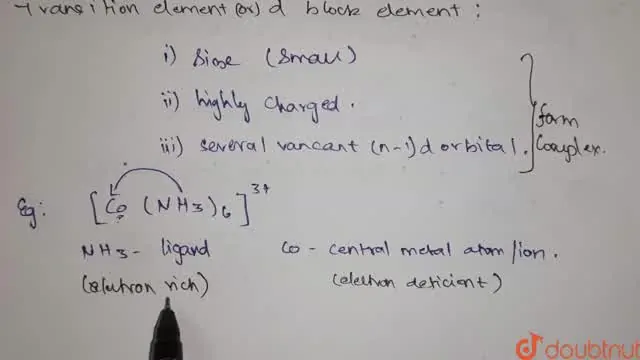 Transition element (or) d block element :
i) Size (Small)
ii) highly charged.
iii) several vancant (n-1) d orbital.
form
Complex.
Eg: [Co (NH3)6]3+
NH3 - ligand
Co - central metal atom/ion.
(electron rich)
(electron deficient)
doubtnut